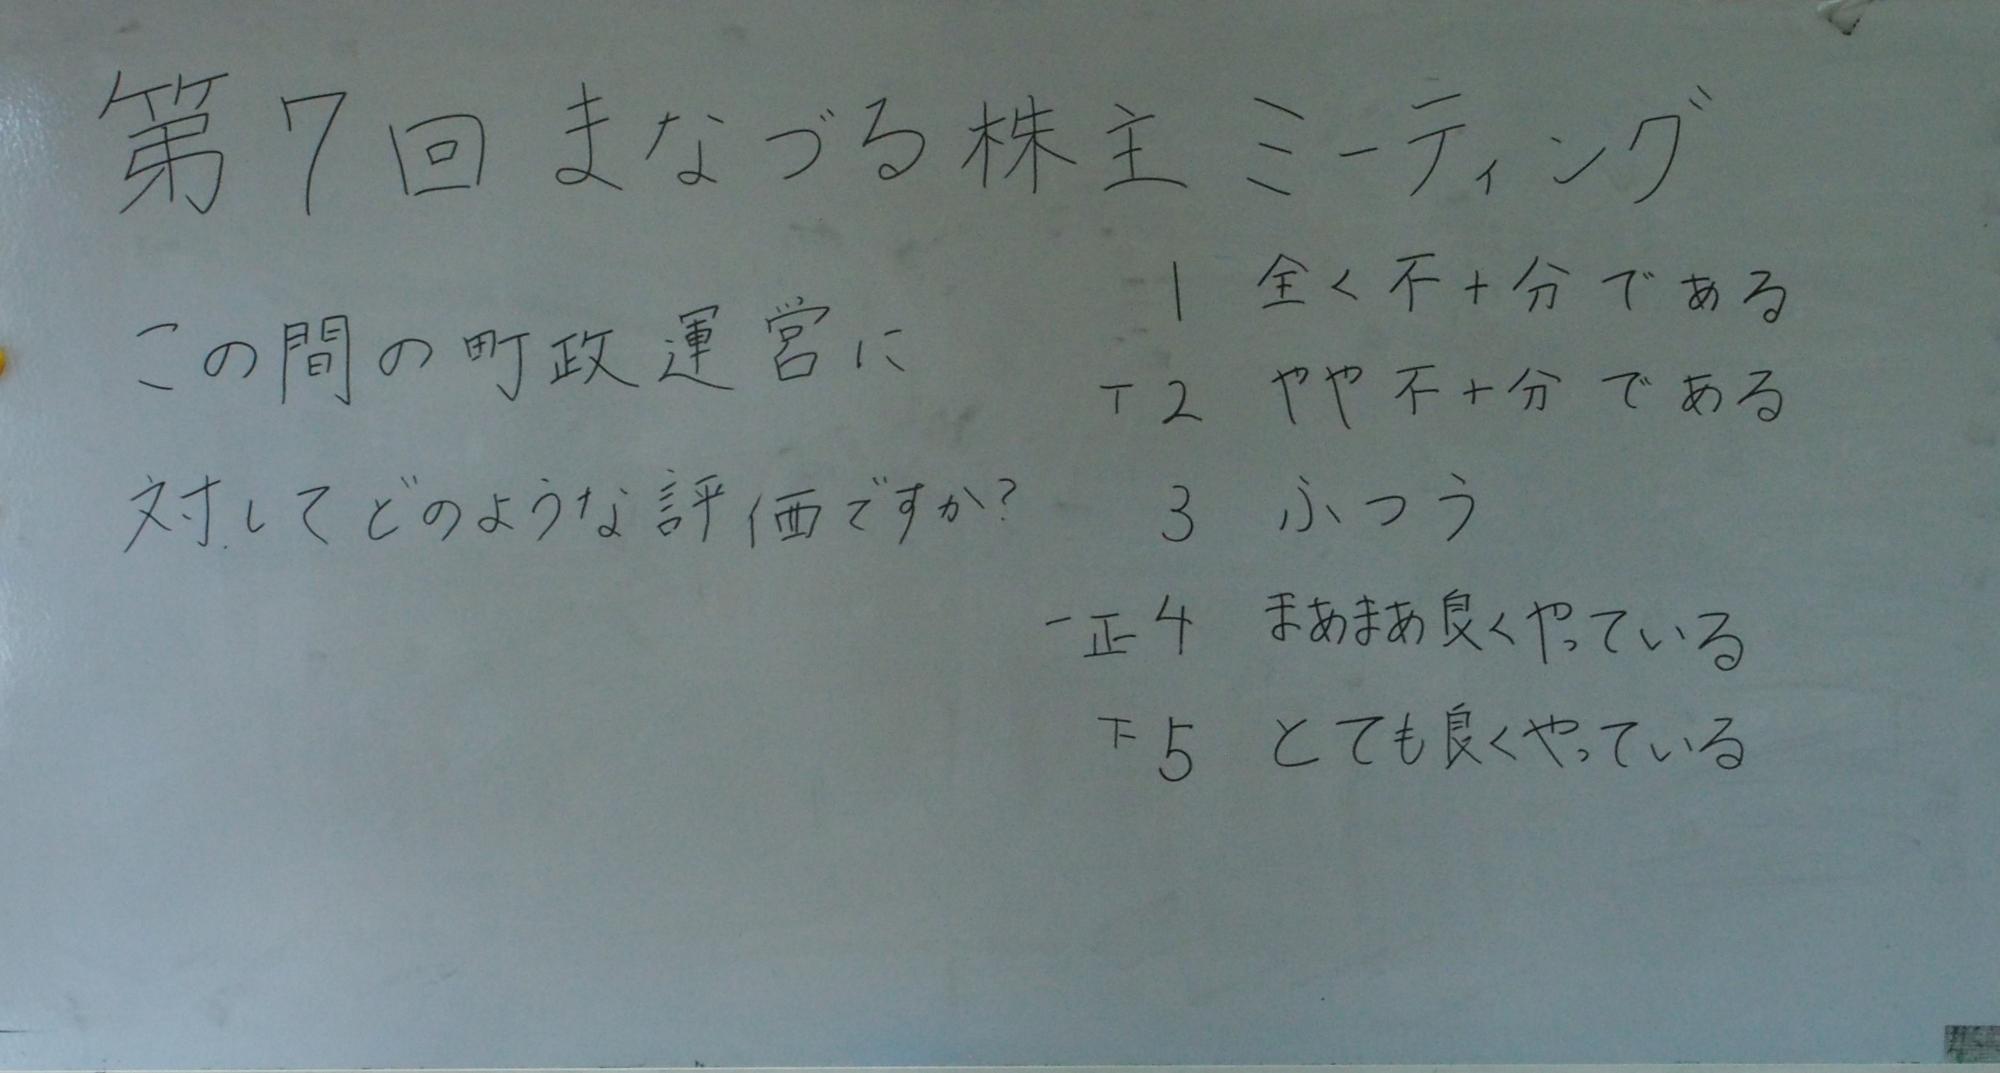 第7回 まなづる株主ミーティング
この間の町政運営に
対してどのような評価ですか?
1 全く不十分である
丅 2 やや不十分である
3 ふつう
一正 4 まあまあ良くやっている
下 5 とても良くやっている